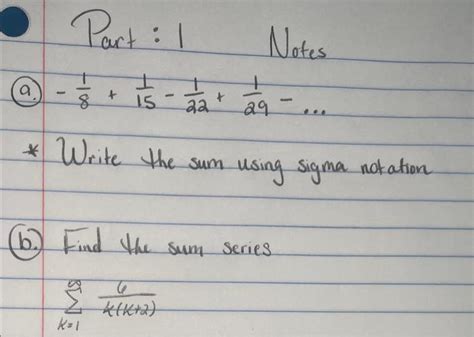 Part : 1 Notes
a. - 1/8 + 1/15 - 1/22 + 1/29 - ...
* Write the sum using sigma notation
b. Find the sum series
∞ Σ k=1 6/k(k+2)